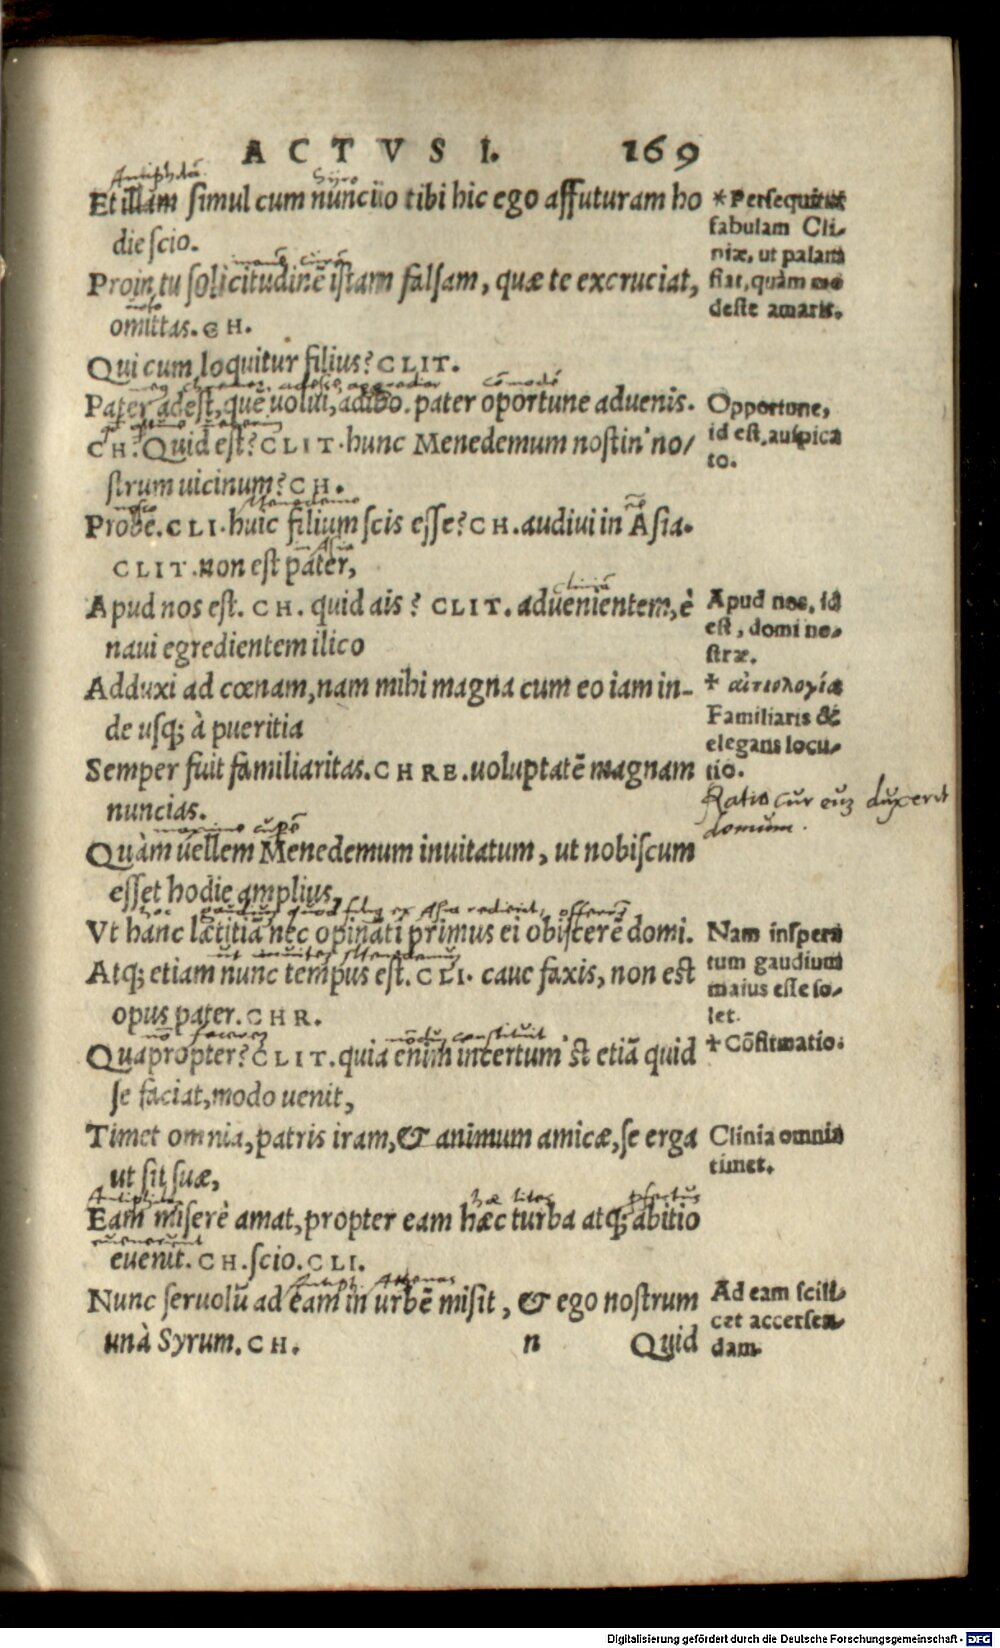 ACTVS I. 169
Antiphilā. Syro
Et illam simul cum nunciio tibi hic ego affuturam ho
die scio.
Proin tu solicitudinē istam falsam, quæ te excruciat,
omittas. CH.
Qui cum loquitur filius? CLIT.
Pater adest, quē uolui, adibo. pater oportune aduenis.
CH. Quid est? CLIT. hunc Menedemum nostin' no/
strum uicinum? CH.
nosco Menedemo
Probe. CLI. huic filium scis esse? CH. audiui in Asia.
in Asia
CLIT. non est pater,
Apud nos est. CH. quid ais? CLIT. aduenientem, è
naui egredientem ilico
Adduxi ad cœnam, nam mihi magna cum eo iam in-
de usq; à pueritia
Semper fuit familiaritas. CHRE. uoluptatē magnam
nuncias.
Quàm uellem Menedemum inuitatum, ut nobiscum
esset hodie amplius,
Vt hanc lætitiā nec opināti primus ei obijcerē domi.
Atq; etiam nunc tempus est. CLI. caue faxis, non est
opus pater. CHR.
constituit
Quapropter? CLIT. quia enim incertum 'st etiā quid
se faciat, modo uenit,
Timet omnia, patris iram, & animum amicæ, se erga
ut sit suæ,
Eam miserè amat, propter eam hæc turba atq; abitio
euenerunt
evenit. CH. scio. CLI.
Antiph. Athenas
Nunc seruolū ad eam in urbē misit, & ego nostrum
unà Syrum. CH. n Quid
*Persequitur
fabulam Cli-
niæ, ut palam
fiat, quàm mo
deste amarit.
Oportune,
id est, auspica
to.
Apud nos, id
est, domi no-
stræ.
+ αἰτιολογία
Familiaris &
elegans locu-
tio.
Ratio cur euz duxerit
domum.
Nam inspera
tum gaudium
maius esse so-
let.
+ Cōfirmatio.
Clinia omnia
timet.
Ad eam scili-
cet accersen-
dam.
Digitalisierung gefördert durch die Deutsche Forschungsgemeinschaft - DFG